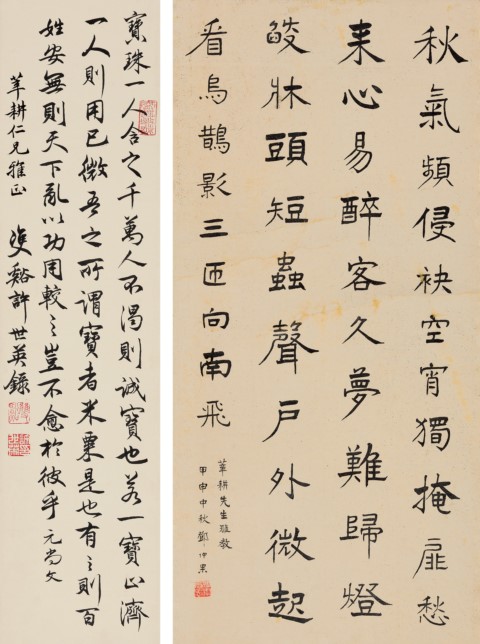 秋氣頻侵袂空宵獨掩扉愁
来心易醉客久夢難歸燈
燄牀頭短蟲聲户外微起
看烏鵲影三匝向南飛
莘耕先生雅教
甲申中秋鄧仲果
寶珠一人含之千萬人不渴則誠寶也若一寶止濟
一人則用已微吾之所謂寶者米粟是也有之則百
姓安無則天下亂以功用較之豈不愈於彼乎元尚文
莘耕仁兄雅正 雙谿許世英錄